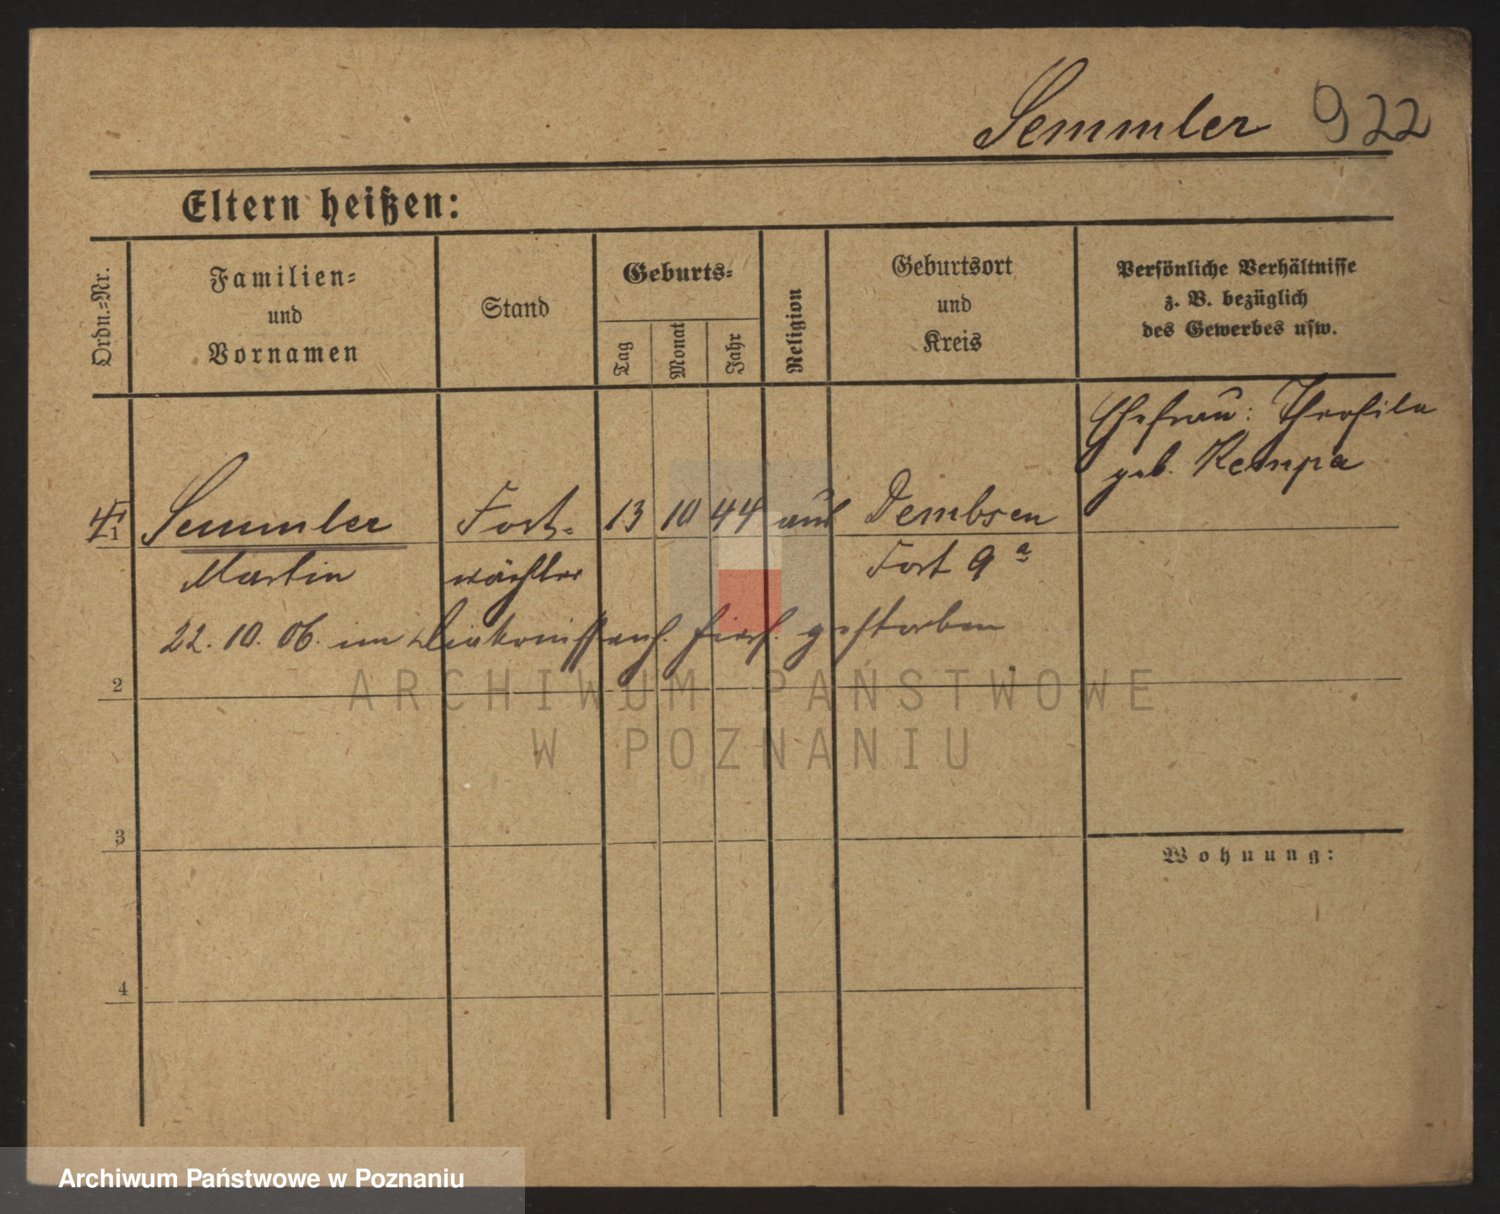 Semmler 922
Eltern heißen:
Ordn.-Nr.
Familien-
und
Vornamen
Stand
Geburts-
Tag
Monat
Jahr
Religion
Geburtsort
und
Kreis
Persönliche Verhältnisse
z. B. bezüglich
des Gewerbes usw.
Ehefrau: Theofila
geb. Kempa
1 Semmler Fort- 13 10 44 aus Dembsen
Martin wächter Fort 9 a
22. 10. 06. im Diakonissenh. hiers. gestorben
2
3
4
Wohnung:
ARCHIWUM PAŃSTWOWE
W POZNANIU
Archiwum Państwowe w Poznaniu